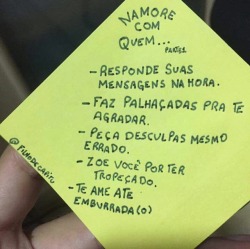 NAMORE
COM
QUEM...
PARTE1
- RESPONDE SUAS
MENSAGENS NA HORA.
- FAZ PALHAÇADAS PRA TE
AGRADAR.
- PEÇA DESCULPAS MESMO
ERRADO.
- ZOE VOCÊ POR TER
TROPEÇADO.
- TE AME ATE
EMBURRADA(O)